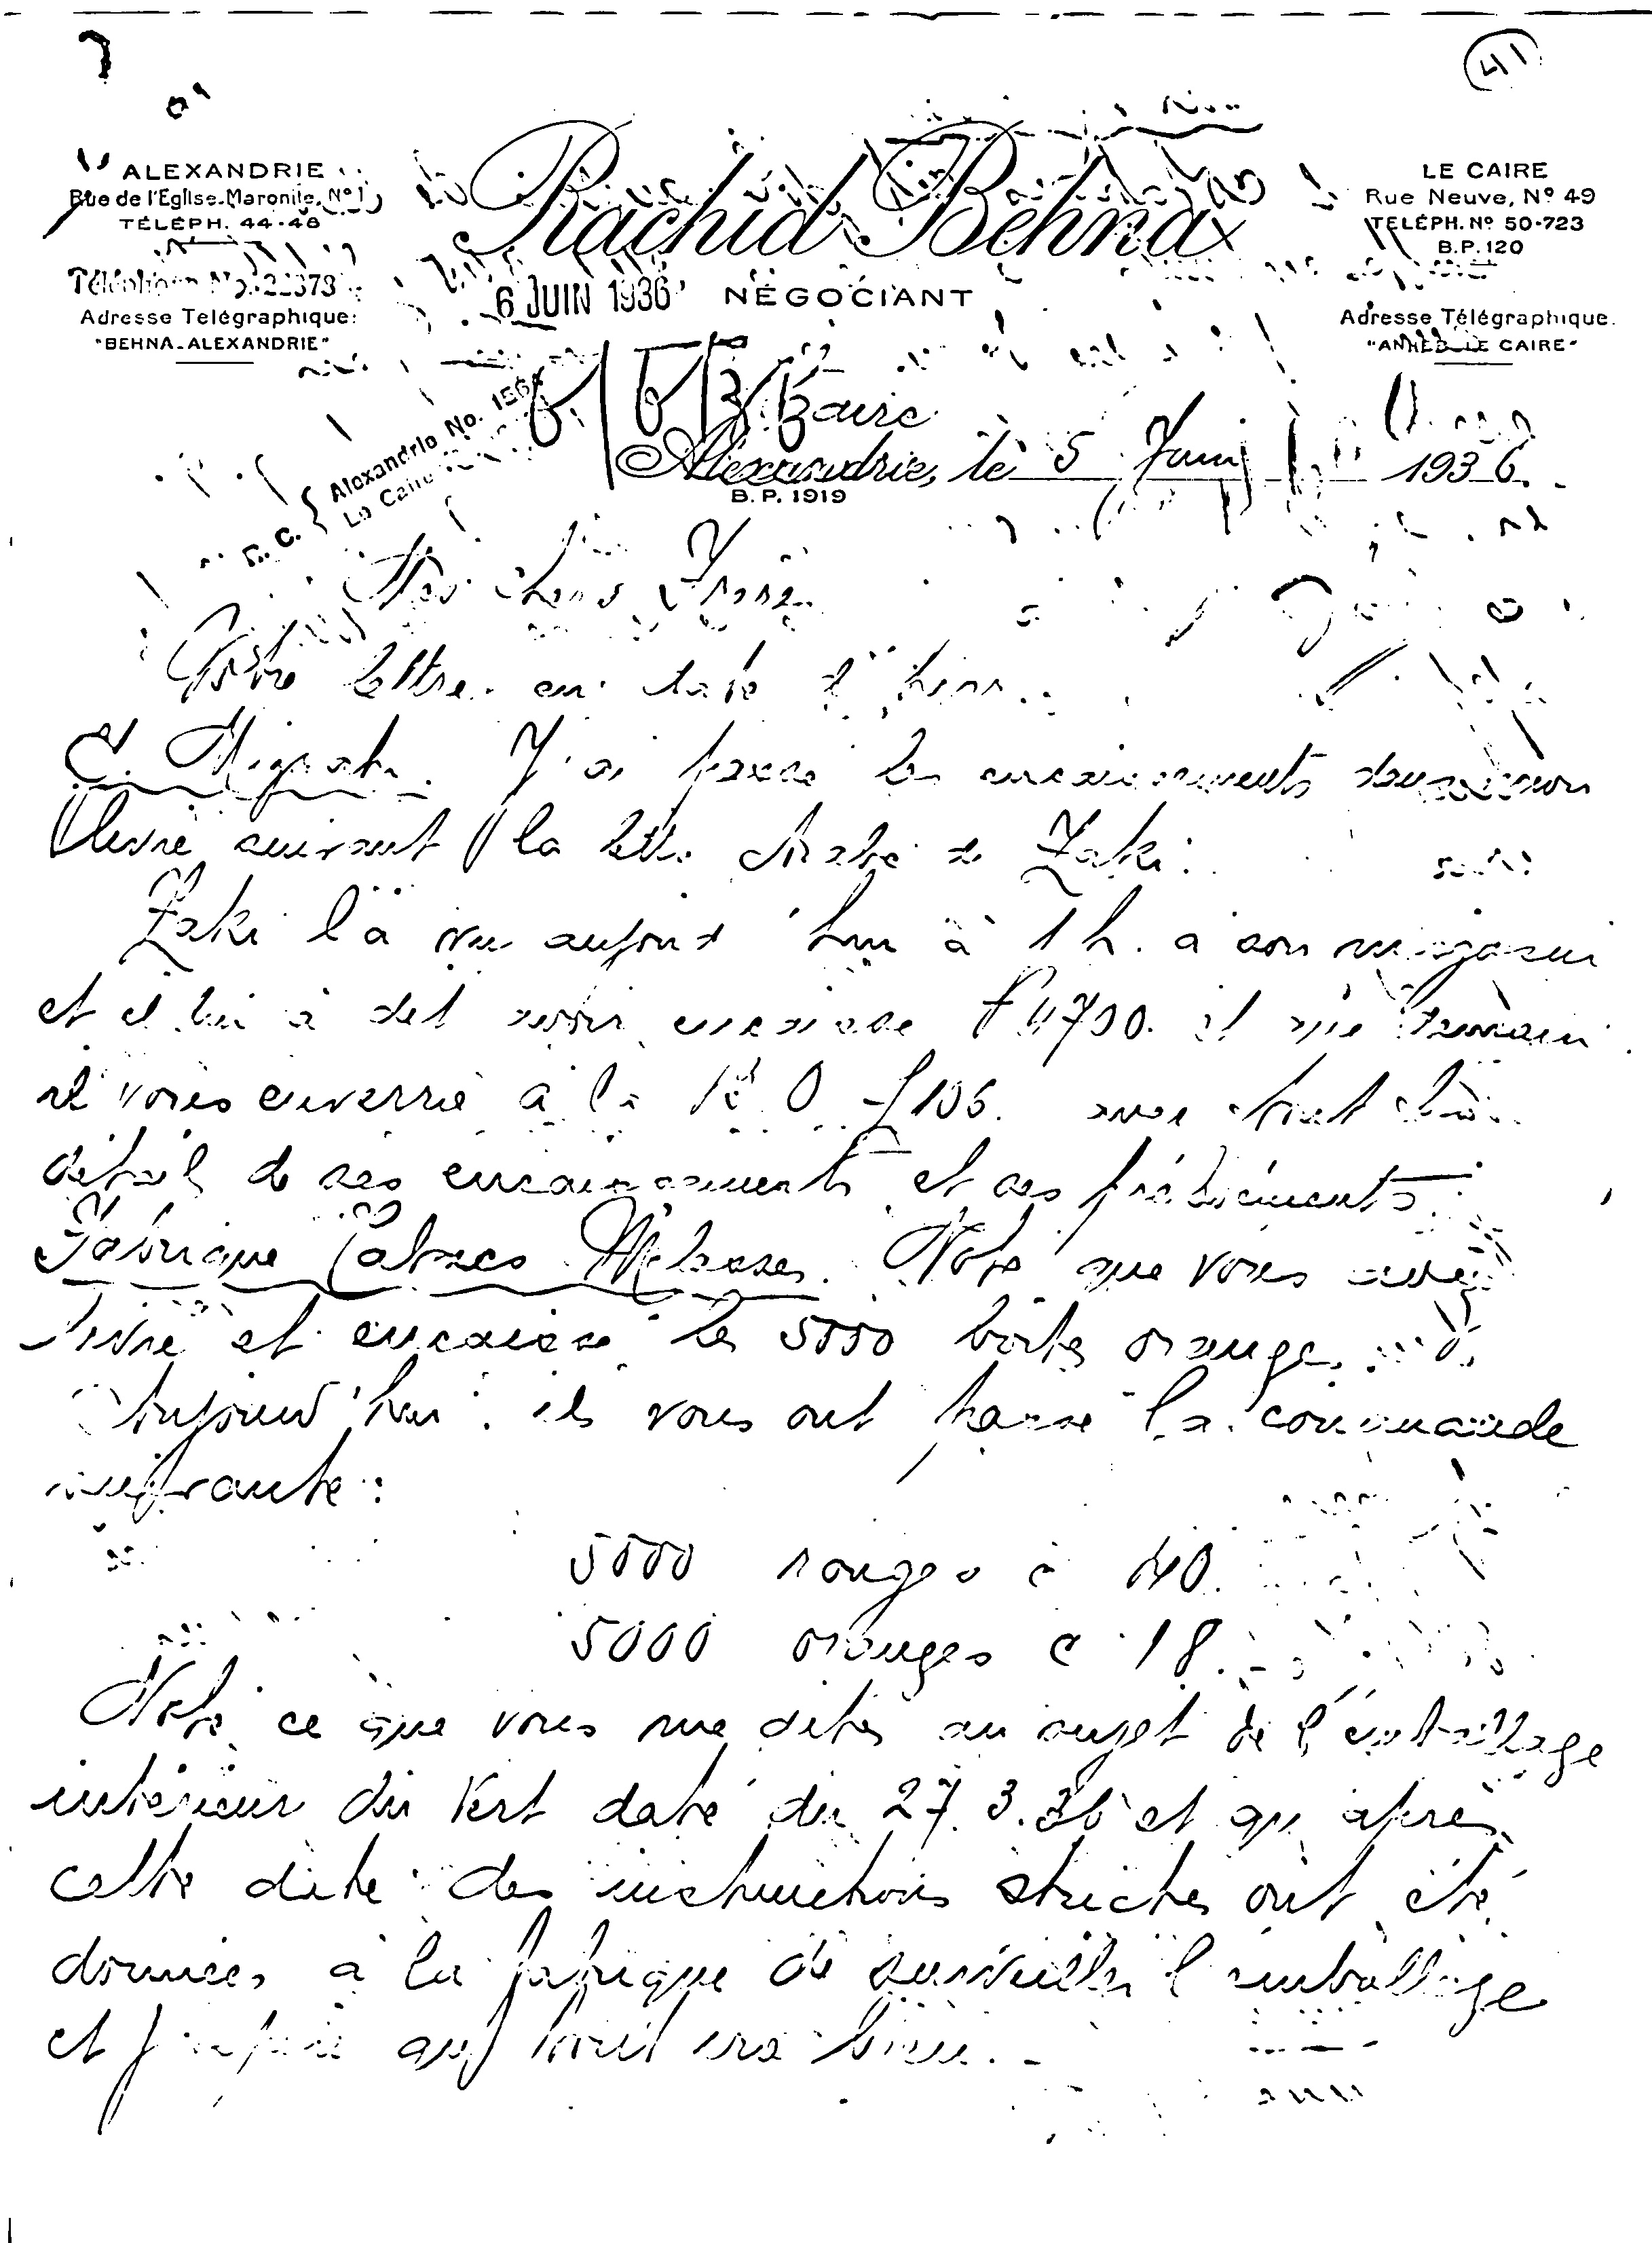 41
ALEXANDRIE
Rue de l'Eglise-Maronite, Nº 1
TÉLÉPH. 44-48
Téléphone No. 22373
Adresse Telégraphique:
"BEHNA-ALEXANDRIE"
Rachid Behna
NÉGOCIANT
6 JUIN 1936
LE CAIRE
Rue Neuve, Nº 49
TELÉPH. Nº 50-723
B.P. 120
Adresse Télégraphique.
"ANHEB-LE CAIRE"
R. C. { Alexandrie No.
Le Caire
Caire
Alexandrie, le 5 Juin 1936.
B. P. 1919
Mes chers Frères
Votre lettre en date d'hier.
C. Mignah. J'ai passé les encaissements dans mon
livre suivant la lettre Arabe de Zaki.
Zaki l'a vu aujourd'hui à 1 h. a son magasin
et il lui a dit avoir encaissé demain
il vous enverra à la avec tout le
détail de ses encaissements et ses prélèvements.
Fabrique Noté que vous avez
livré et encaissé les 5000 boites oranges
Aujourd'hui ils vous ont passé la commande
suivante:
5000 rouges à 40.
5000 oranges à 18.
Noté ce que vous me dites au sujet de l'emballage
intérieur du Vert daté du 27.3.36 et qu'après
cette date des instructions strictes ont été
données à la fabrique de surveiller l'emballage
et j'espère que tout ira bien.-